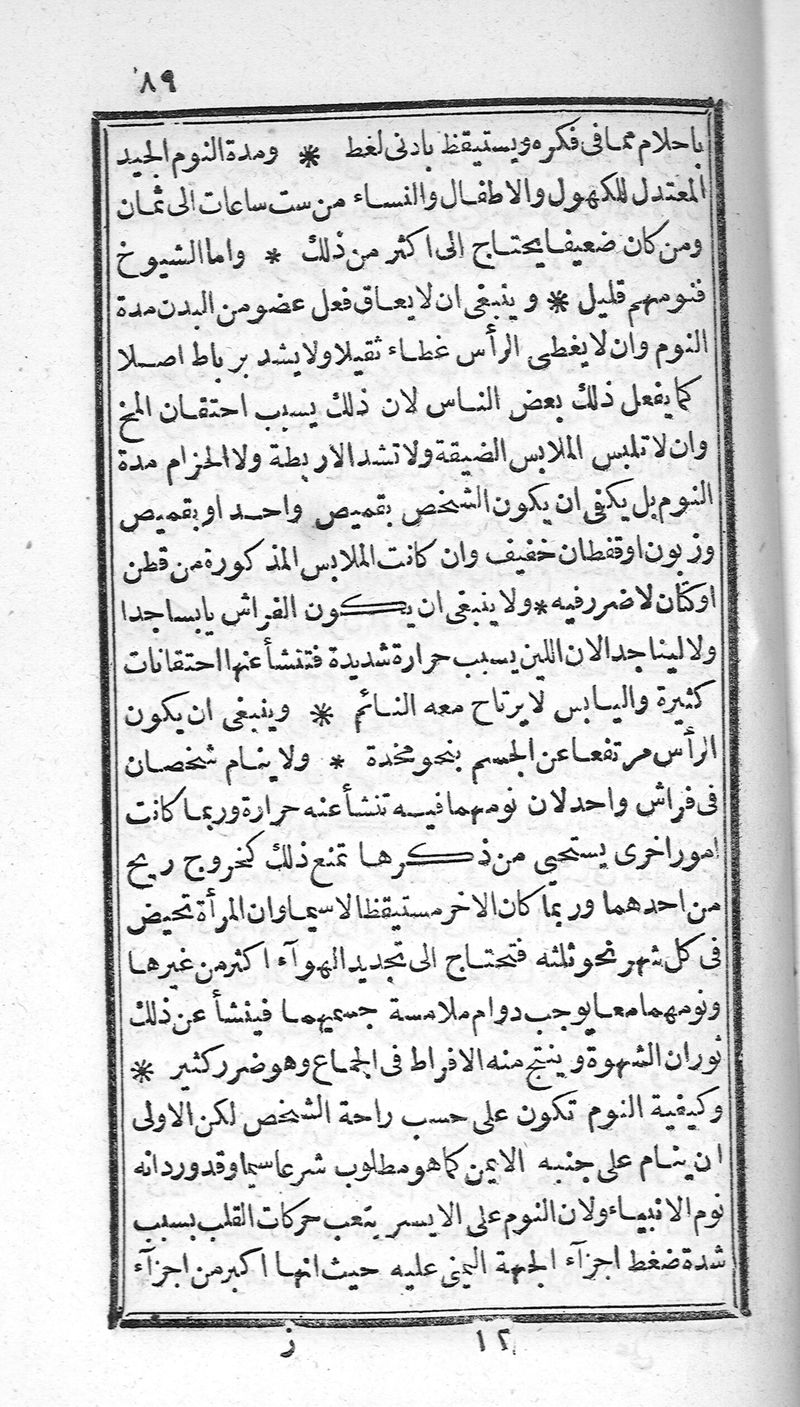 ٨٩
باحلام ممافى فكره ويستيقظ بادنى لغط * ومدة النوم الجيد
المعتدل للكهول والاطفال والنساء من ست ساعات الى ثمان
ومن كان ضعيفا يحتاج الى اكثر من ذلك * واما الشيوخ
فنومهم قليل * وينبغى ان لا يعاق فعل عضو من البدن مدة
النوم وان لا يغطى الرأس غطاء ثقيلا ولا يشد برباط اصلا
كما يفعل ذلك بعض الناس لان ذلك يسبب احتقان المخ
وان لا تلبس الملابس الضيقة ولا تشد الاربطة ولا الحزام مدة
النوم بل يكفى ان يكون الشخص بقميص واحد او بقميص
وزبون او قفطان خفيف وان كانت الملابس المذكورة من قطن
او كتّان لا ضرر فيه * ولا ينبغى ان يكون الفراش يابسا جدا
ولا لينا جدا لان اللين يسبب حرارة شديدة فتنشأ عنها احتقانات
كثيرة واليابس لا يرتاح معه النائم * وينبغى ان يكون
الرأس مرتفعا عن الجسم بنحو مخدة * ولا ينام شخصان
فى فراش واحد لان نومهما فيه تنشأ عنه حرارة وربما كانت
امور اخرى يستحيى من ذكرها تمنع ذلك كخروج ريح
من احدهما وربما كان الاخر مستيقظا لاسيما وان المرأة تحيض
فى كل شهر نحو ثلثه فتحتاج الى تجديد الهوآء اكثر من غيرها
ونومهما معا يوجب دوام ملامسة جسميهما فينشأ عن ذلك
ثوران الشهوة وينتج منه الافراط فى الجماع وهو ضرر كثير *
وكيفية النوم تكون على حسب راحة الشخص لكن الاولى
ان ينام على جنبه الايمن كما هو مطلوب شرعا سيما وقد ورد انه
نوم الانبياء ولان النوم على الايسر يتعب حركات القلب بسبب
شدة ضغط اجزآء الجهة اليمنى عليه حيث انها اكبر من اجزآء
١٢ ز